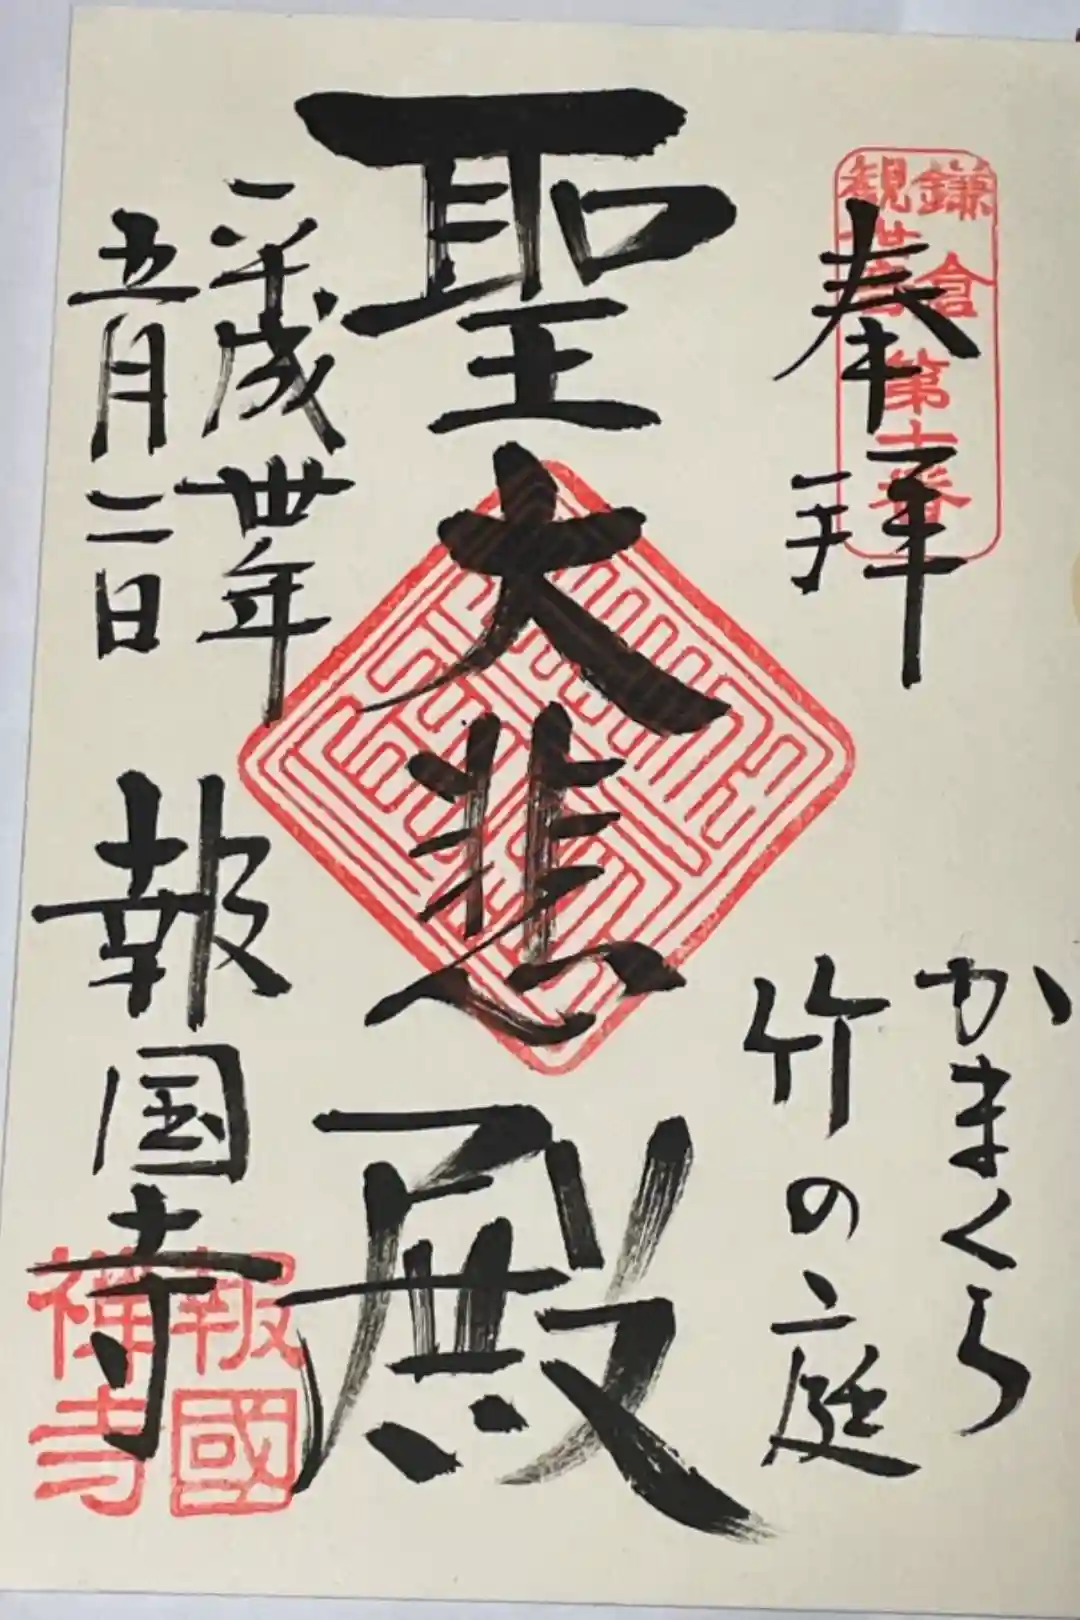 鎌倉
観世音
第十番
奉拝
かまくら
竹の庭
聖大悲殿
平成丗年
五月二日
報国寺
報國
禅寺